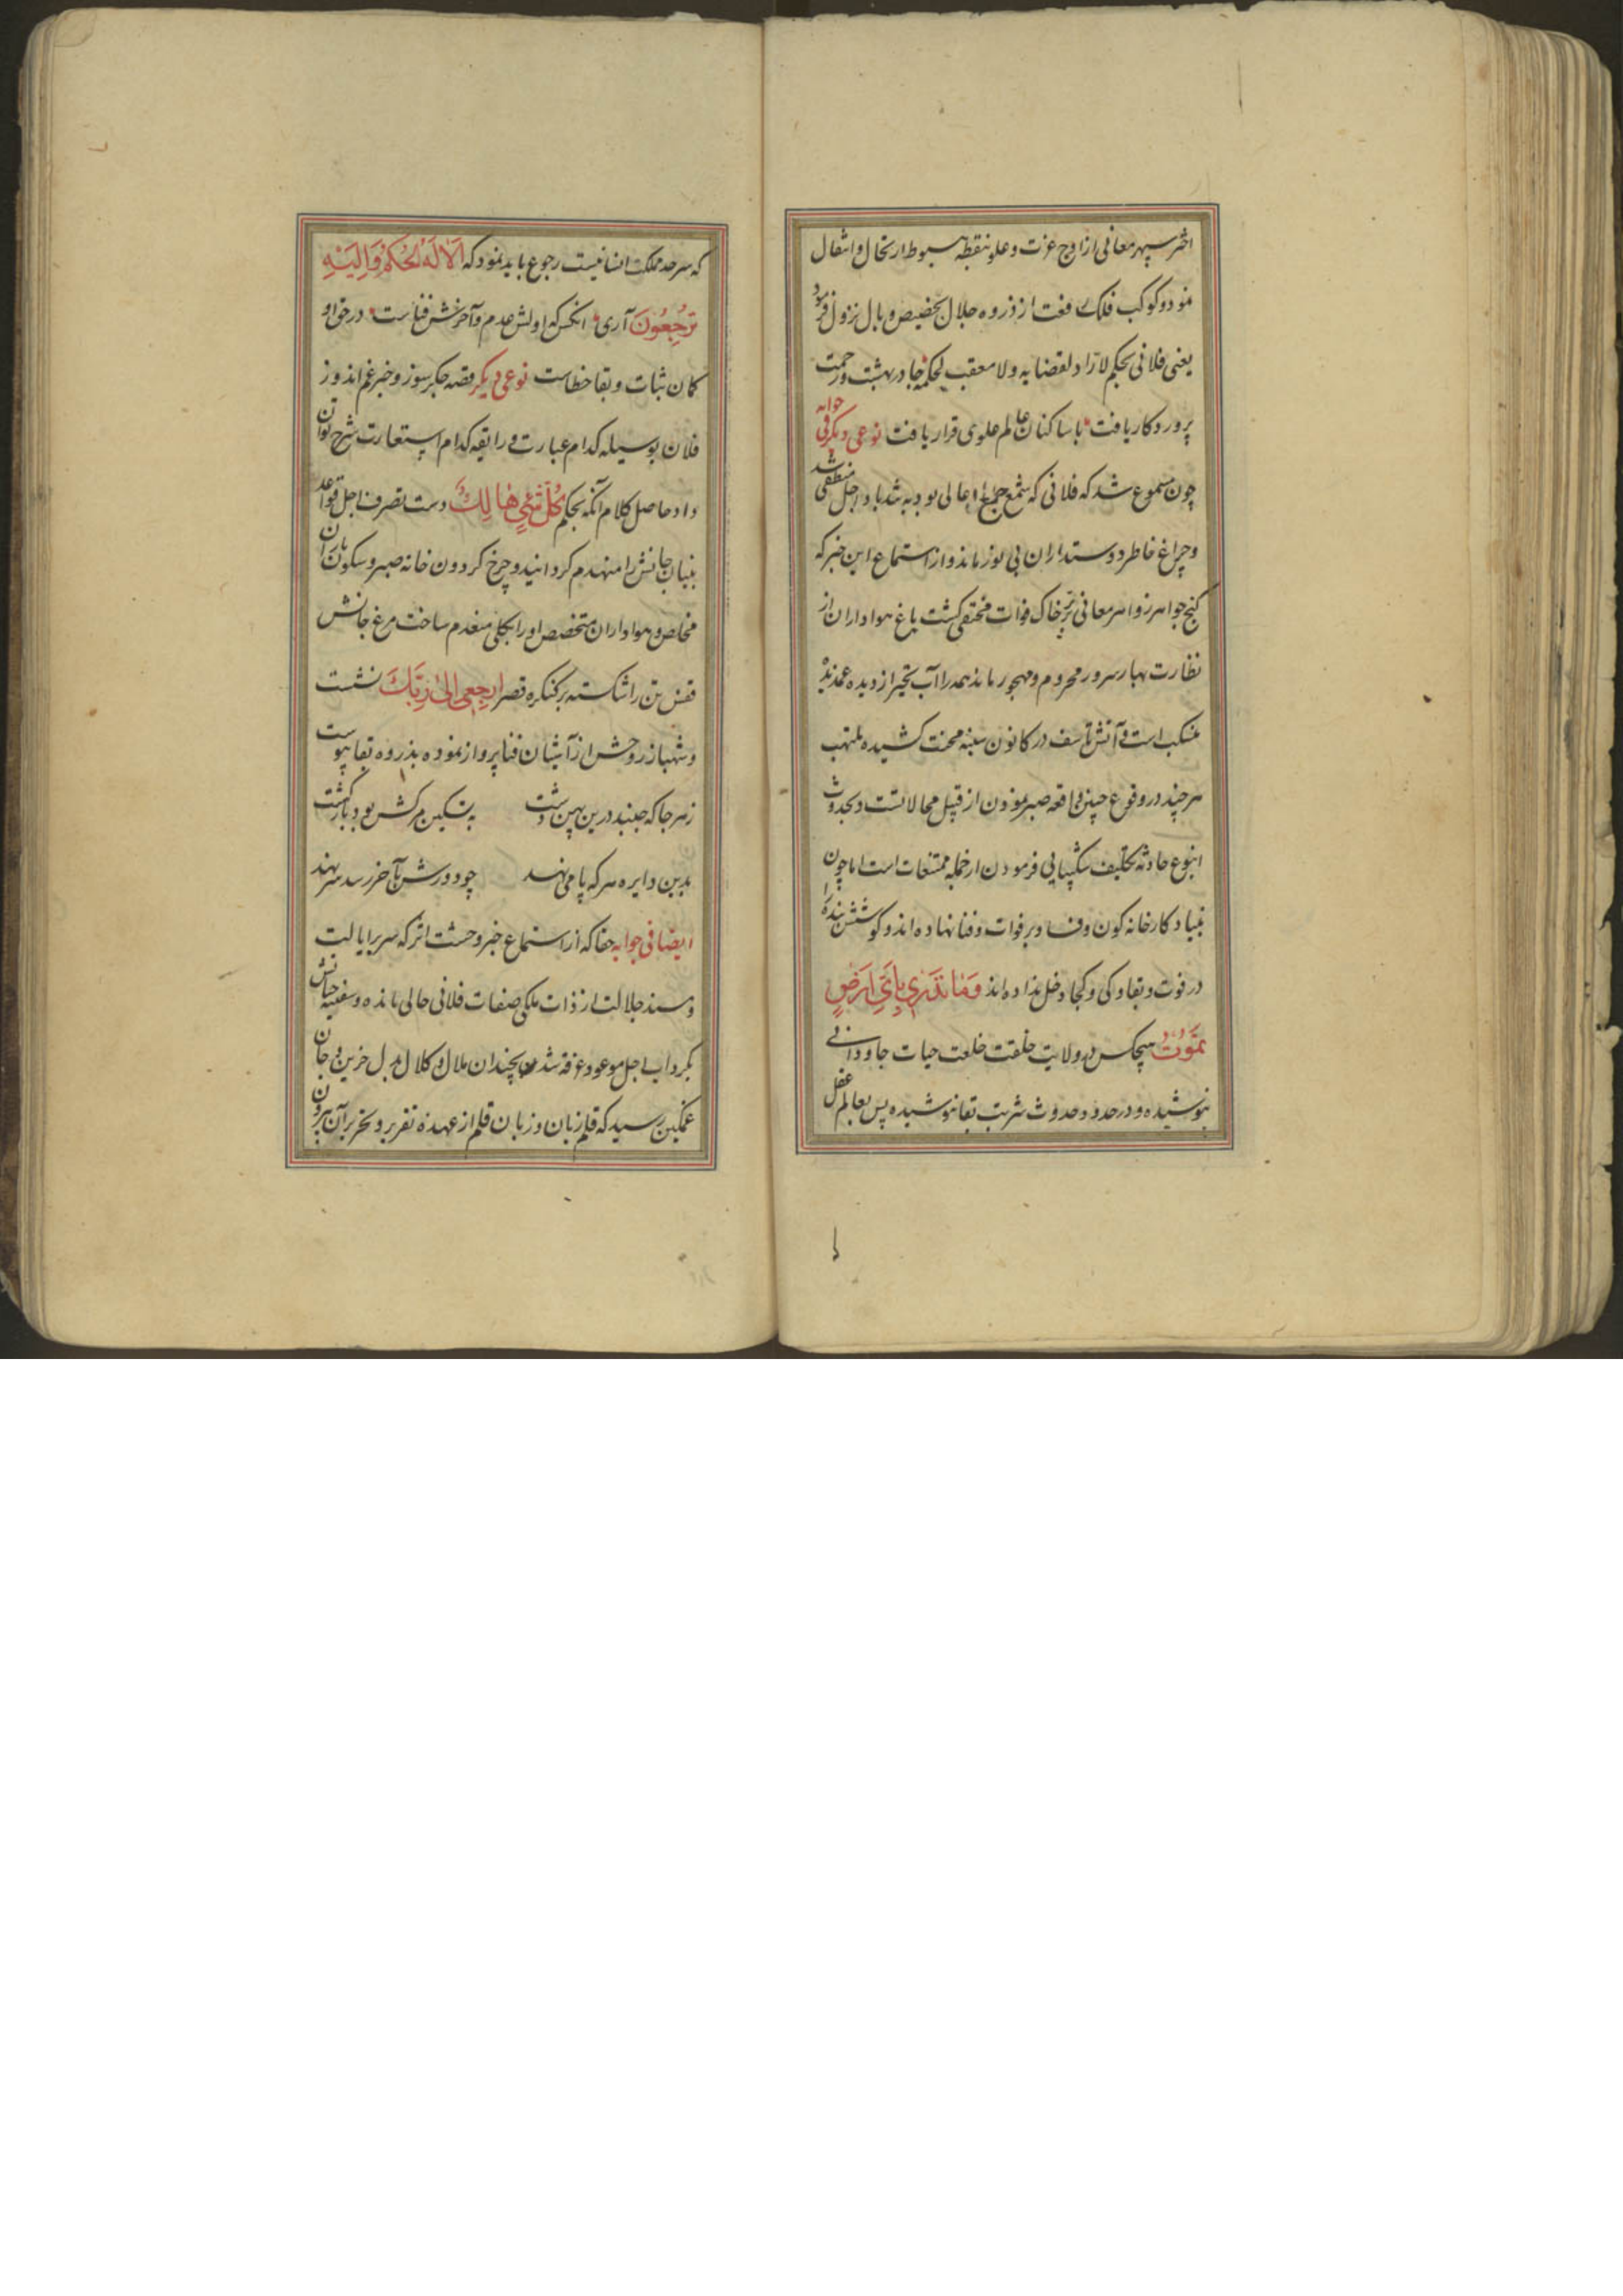 اختر سپهر معانی از اوج عزت و علو بنقطه هبوط ارتحال و انتقال
نمود و کوکب فلک رفعت از ذروه جلال بحضیض وبال نزول فرمود
یعنی فلانی بحکم لاراد لقضایه و لا معقب لحکمه جا در بهشت و رحمت
پروردکار یافت با ساکنان عالم علوی قرار یافت نوعی دیکر فی جوابه
چون مسموع شد که فلانی که شمع جمع اعالی بود به تندباد اجل منطفی شد
و چراغ خاطر دوستداران بی نور ماند و از استماع این خبر که
کنج جواهر زواهر معانی در زیر خاک فوات مختفی کشت باغ هواداران از
نظارت بهار سرور محروم و مهجور ماند همه را آب تحیر از دیده
منسکب است و آتش تاسف در کانون سینه محنت کشیده ملتهب
هر چند در وقوع چنین واقعه صبر نمودن از قبیل محالاتست و بحدوث
اینوع حادثه تکلیف شکیبایی فرمودن از جمله ممتنعات است اما چون
بنیاد کارخانه کون و فساد بر فوات و فنا نهاده اند و کوشش بنده را
در فوت و بقا و کی و کجا دخل نداده اند وَمَا تَدْرِي بِأَيِّ أَرْضٍ
تَمُوتُ هیچکس در ولایت خلقت خلعت حیات جاودانی
نپوشیده و در حدود حدوث شربت بقا ننوشیده پس بعالم عقل
که سرحد مملکت انسانیست رجوع باید نمود که أَلَا لَهُ الْحُكْمُ وَإِلَيْهِ
تُرْجَعُونَ آری انکس که اولش عدم و آخرش فناست در حق او
کمان ثبات و بقا خطاست نوعی دیکر قصه جکرسوز و خبر غم اندوز
فلان بوسیله کدام عبارت و رابقه کدام استعارت شرح توان
داد حاصل کلام آنکه بحکم كُلُّ شَيْءٍ هَالِكٌ دست تصرف اجل قواعد
بنیان جانش را منهدم کردانید و چرخ کردون خانه صبر و سکون یاران
مخلص و هواداران متخصص او را بکلی منعدم ساخت مرغ جانش
قفس تن را شکسته بر کنکره قصر ارْجِعِي إِلَىٰ رَبِّكَ نشست
و شهباز روحش از آشیان فنا پرواز نموده بذروه بقا پیوست
ز هر جا که جنبد درین پهن دشت به تسکین مرکش بود بازکشت
بدین دایره هر که پا می نهد چو دورش بآخر رسد سر نهد
ایضا فی جوابه حقا که از استماع خبر وحشت اثر که سریر ایالت
و مسند جلالت از ذات ملکی صفات فلانی خالی مانده و سفینه حیاتش
بکرداب اجل موعود غرقه شده چندان ملال و کلال بدل حزین و جان
غمکین رسید که قلم زبان و زبان قلم از عهده تقریر و تحریر آن بیرون